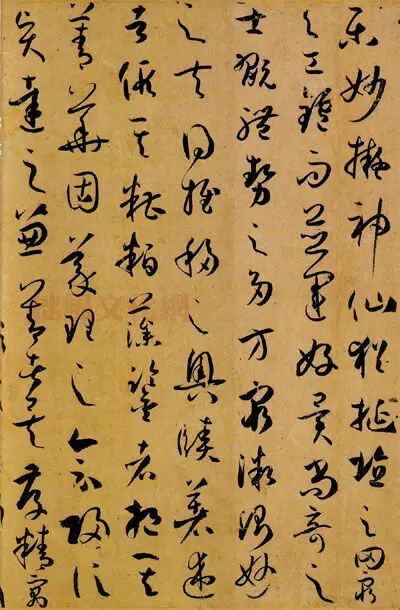 樂妙擬神仙猶挻埴之罔窮
與工鑪而並運好異尚奇之
士翫體勢之多方窮微測妙
之夫得推移之奧賾著述
者假其糟粕藻鑒者挹其
菁華固義理之會歸信
賢達之兼善者矣存精寓